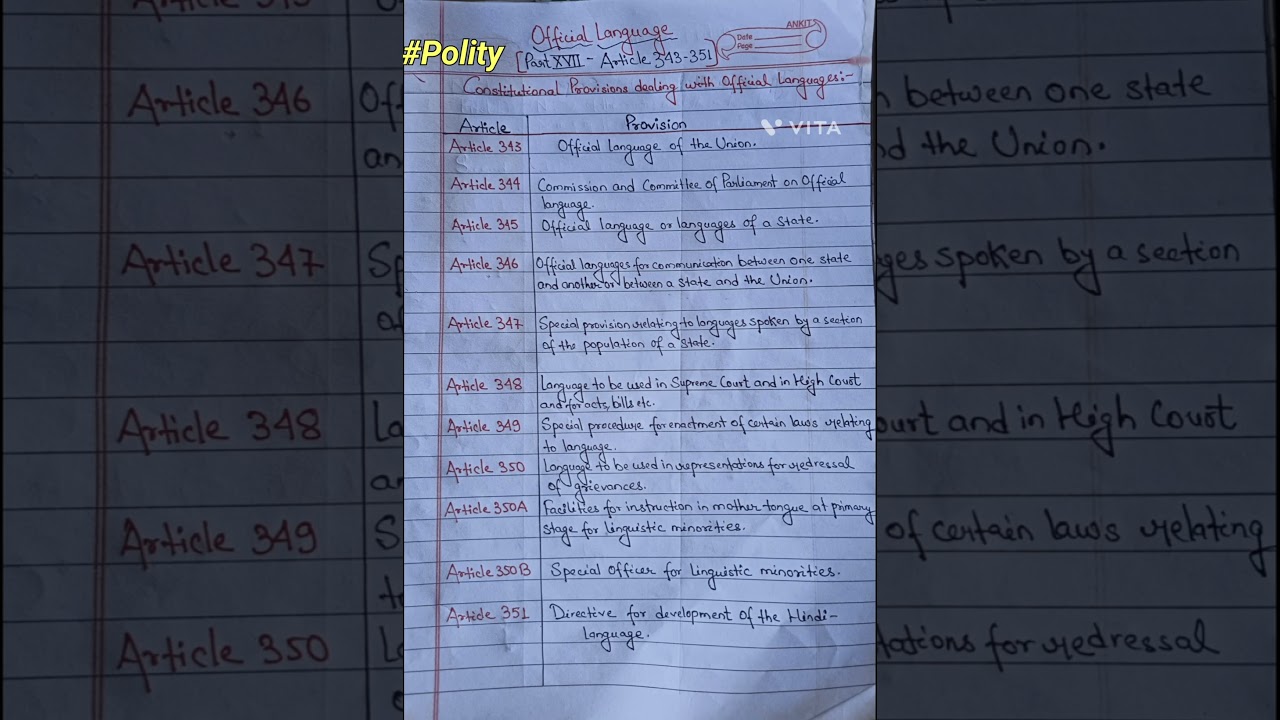 Official Language
ANKIT
Date
Page
#Polity
[Part XVII - Article 343-351]
Constitutional Provisions dealing with Official Languages:-
Article Provision
VITA
Article 343 Official language of the Union.
Article 344 Commission and Committee of Parliament on Official
language.
Article 345 Official language or languages of a state.
Article 346 Official languages for communication between one state
and another or between a state and the Union.
Article 347 Special provision relating to languages spoken by a section
of the population of a state.
Article 348 Language to be used in Supreme Court and in High Court
and for acts, bills etc.
Article 349 Special procedure for enactment of certain laws relating
to language.
Article 350 Language to be used in representations for redressal
of grievances.
Article 350A Facilities for instruction in mother tongue at primary
stage for linguistic minorities.
Article 350B Special Officer for linguistic minorities.
Article 351 Directive for development of the Hindi-
language.
Article 346
between one state
the Union.
Article 347
spoken by a section
Article 348
and in High Court
Article 349
of certain laws relating
Article 350
for redressal